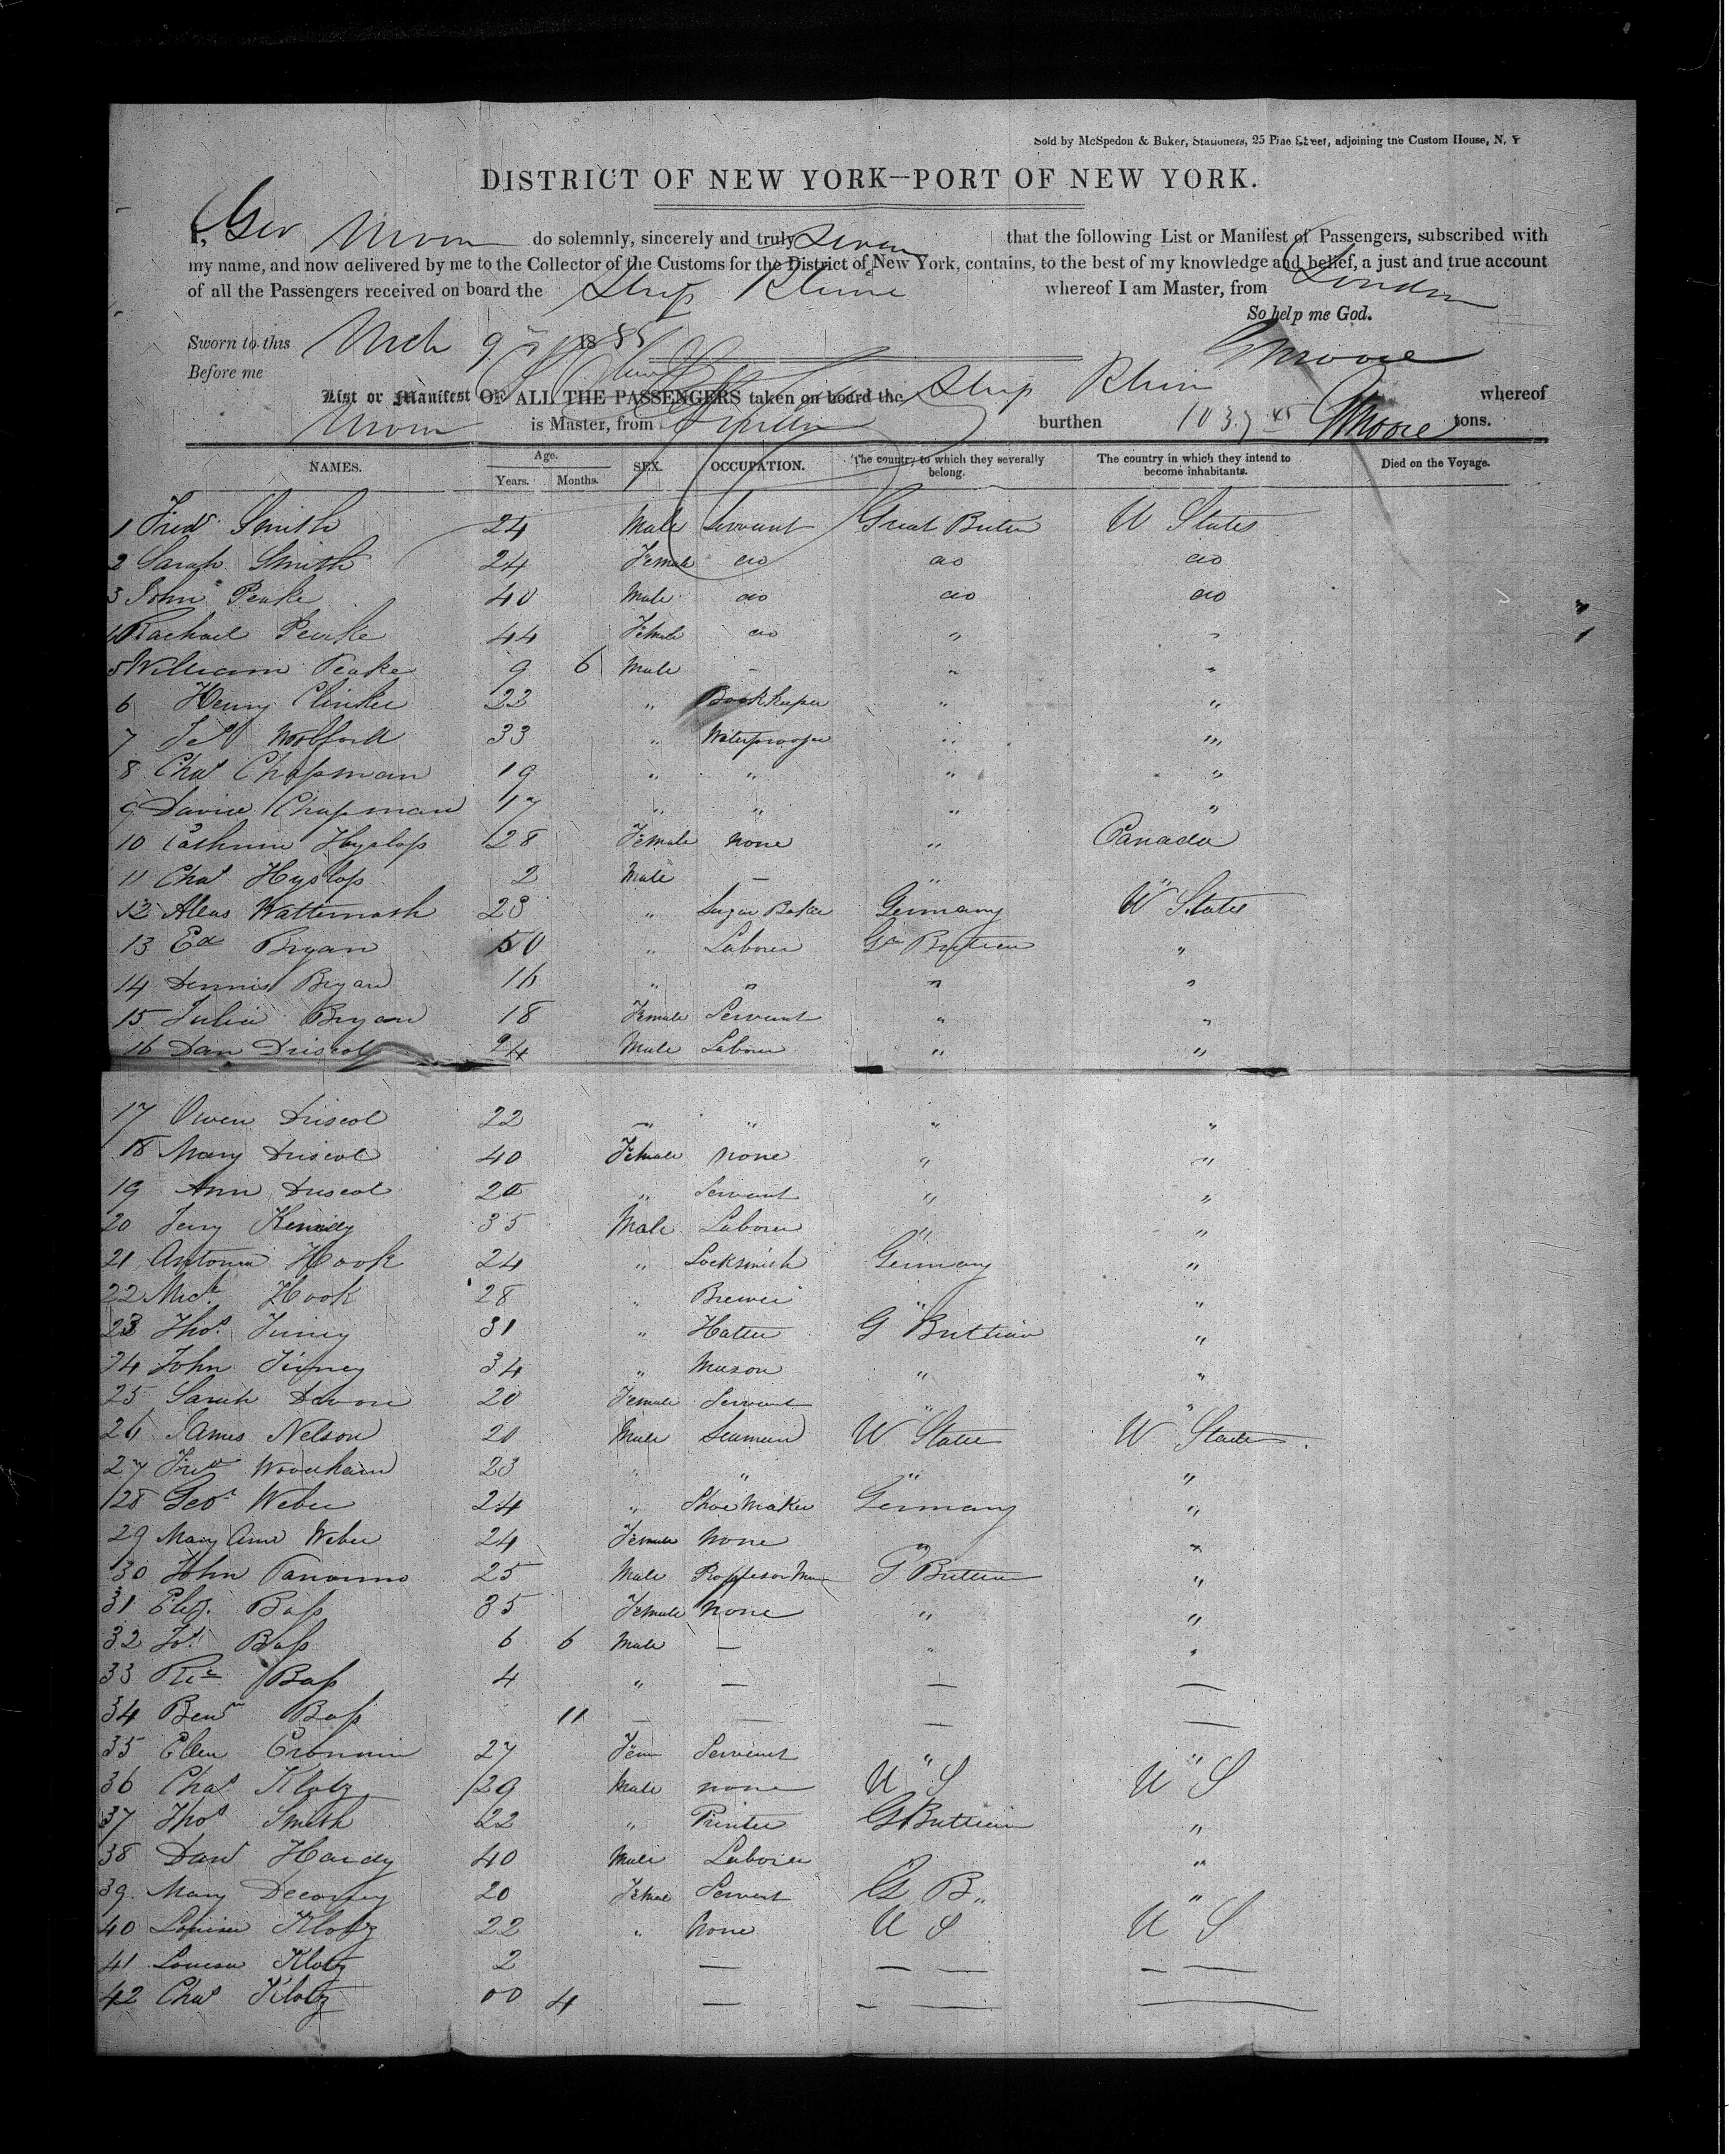 Sold by McSpedon & Baker, Stationers, 25 Pine Street, adjoining the Custom House, N. Y
DISTRICT OF NEW YORK—PORT OF NEW YORK.
I, Geo Moore do solemnly, sincerely and truly Swear that the following List or Manifest of Passengers, subscribed with
my name, and now delivered by me to the Collector of the Customs for the District of New York, contains, to the best of my knowledge and belief, a just and true account
of all the Passengers received on board the Ship Rhine whereof I am Master, from London
So help me God.
Sworn to this Mch 9 1855 G Moore
Before me
List or Manifest OF ALL THE PASSENGERS taken on board the Ship Rhine whereof
Moore is Master, from London burthen 1037 45 G Moore tons.
NAMES. Age. Years. Months. SEX. OCCUPATION. The country to which they severally belong. The country in which they intend to become inhabitants. Died on the Voyage.
1 Fredk Smith 24 Male Servant Great Britn U States
2 Sarah Smith 24 Female do do do
3 John Peake 40 Male do do do
4 Rachael Peake 44 Female do " "
5 William Peake 9 6 Male - " "
6 Henry Clinker 22 " Book Keeper " "
7 Woolford 33 " Waterproofer " "
8 Chas Chapman 19 " " " "
9 David Chapman 17 " " " "
10 Hyslop 28 Female none " Canada
11 Chas Hyslop 2 Male — " "
12 23 " Sugar Baker Germany U States
13 Ed Bryan 50 " Laborer Gt Britain "
14 Dennis Bryan 16 " " " "
15 Julia Bryan 18 Female Servant " "
16 Dan Driscol 24 Male Laborer " "
17 Owen Driscol 22 " " " "
18 Mary Driscol 40 Female none " "
19 Ann Driscol 20 " Servant " "
20 Jerry Kennidy 35 Male Laborer " "
21 Hook 24 " Locksmith Germany "
22 Mich Hook 28 " Brewer " "
23 Thos Tirney 31 " Hatter G Brittain "
24 John Tirney 34 " Mason " "
25 Sarah Devon 20 Female Servant " "
26 James Nelson 20 Male Seaman U States U States
27 Fredk 23 " " " "
28 Geo Weber 24 " Shoe Maker Germany "
29 Mary Ann Weber 24 Female none " "
30 John 25 Male G Brittain "
31 Eliz. Bass 35 Female none " "
32 Jos Bass 6 6 Male — " "
33 Bass 4 " — — —
34 Benj Bass 11 — — — —
35 Ellen Cronnin 27 Fem Servant " "
36 Chas Klotz 29 Male none U S U S
37 Thos Smith 22 " Printer G Brittain "
38 Davd Hardy 40 Male Laborer "
39 Mary 20 Femal Servant G B " "
40 Louisa Klotz 22 " None U S U S
41 Louisa Klotz 2 — — — — —
42 Chas Klotz 00 4 — — — —